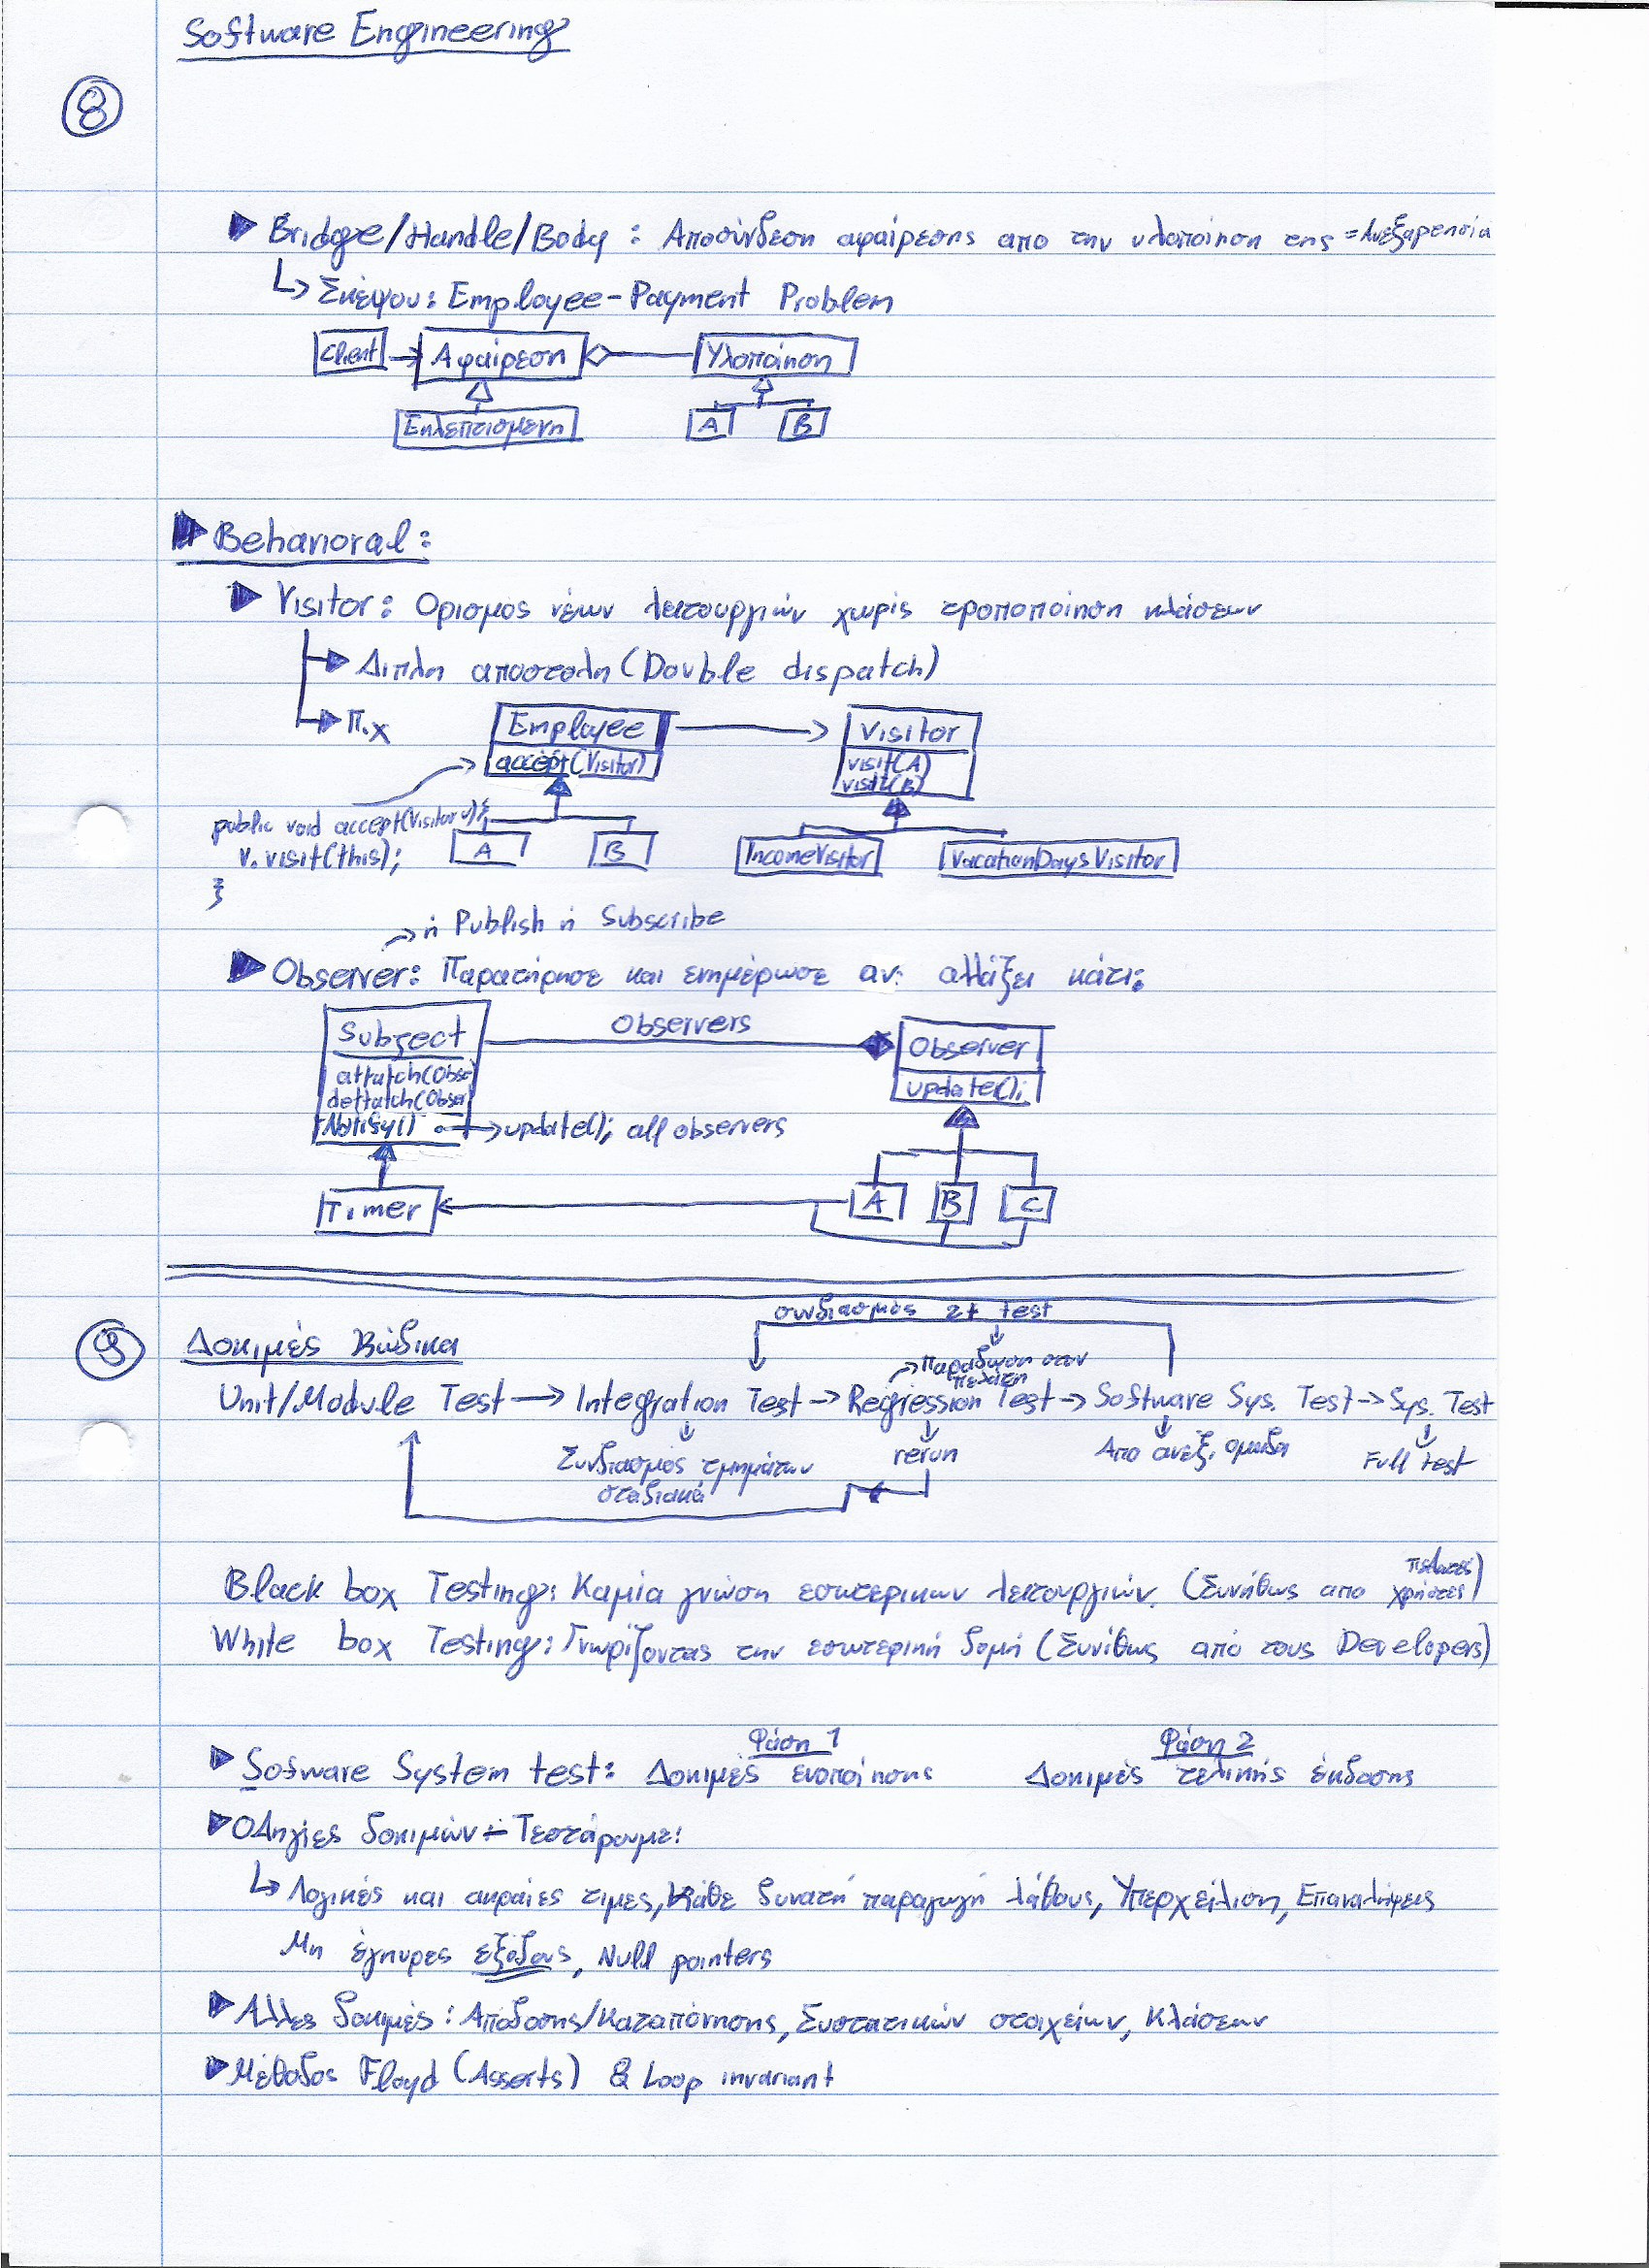 Software Engineering
8
Bridge/Handle/Body : Αποσύνδεση αφαίρεσης απο την υλοποίηση της = Ανεξαρτησία
Σκέψου: Employee-Payment Problem
Client Αφαίρεση Υλοποίηση
Εκλεπτισμενη A B
Behavioral:
Visitor: Ορισμος νέων λειτουργιών χωρίς τροποποίηση κλάσεων
Διπλη αποστολη (Double dispatch)
Π.χ Employee Visitor
accept(Visitor) visit(A)
visit(B)
public void accept(Visitor v){
v.visit(this); A B IncomeVisitor VacationDaysVisitor
}
ή Publish ή Subscribe
Observer: Παρατήρησε και ενημέρωσε αν: αλλάξει κάτι;
Subject Observers Observer
attatch(Obse update();
dettatch(Obser
Notify() update(); all observers
Timer A B C
συνδιασμος 2+ test
9 Δοκιμές Κώδικα
Παράδωση στον
πελάτη
Unit/Module Test → Integration Test → Regression Test → Software Sys. Test → Sys. Test
Συνδιασμος τμημάτων rerun Απο ανεξ. ομαδα Full test
σταδιακά
Black box Testing: Καμία γνώση εσωτερικων λειτουργιών. (Συνήθως απο πελάτες χρήστες)
White box Testing: Γνωρίζοντας την εσωτερική δομή (Συνίθως από τους Developers)
Φάση 1 Φάση 2
Software System test: Δοκιμές ενοποίησης Δοκιμές τελικής έκδοσης
Οδηγίες δοκιμών - Τεστάρουμε:
Λογικές και ακραίες τιμες, κάθε δυνατή παραγωγή λάθους, Υπερχείλιση, Επαναλήψεις
Μη έγκυρες εξόδους, Null pointers
Αλλες δοκιμές: Απόδοσης/Καταπόνησης, Συστατικών στοιχείων, Κλάσεων
Μέθοδος Floyd (Asserts) & Loop invariant